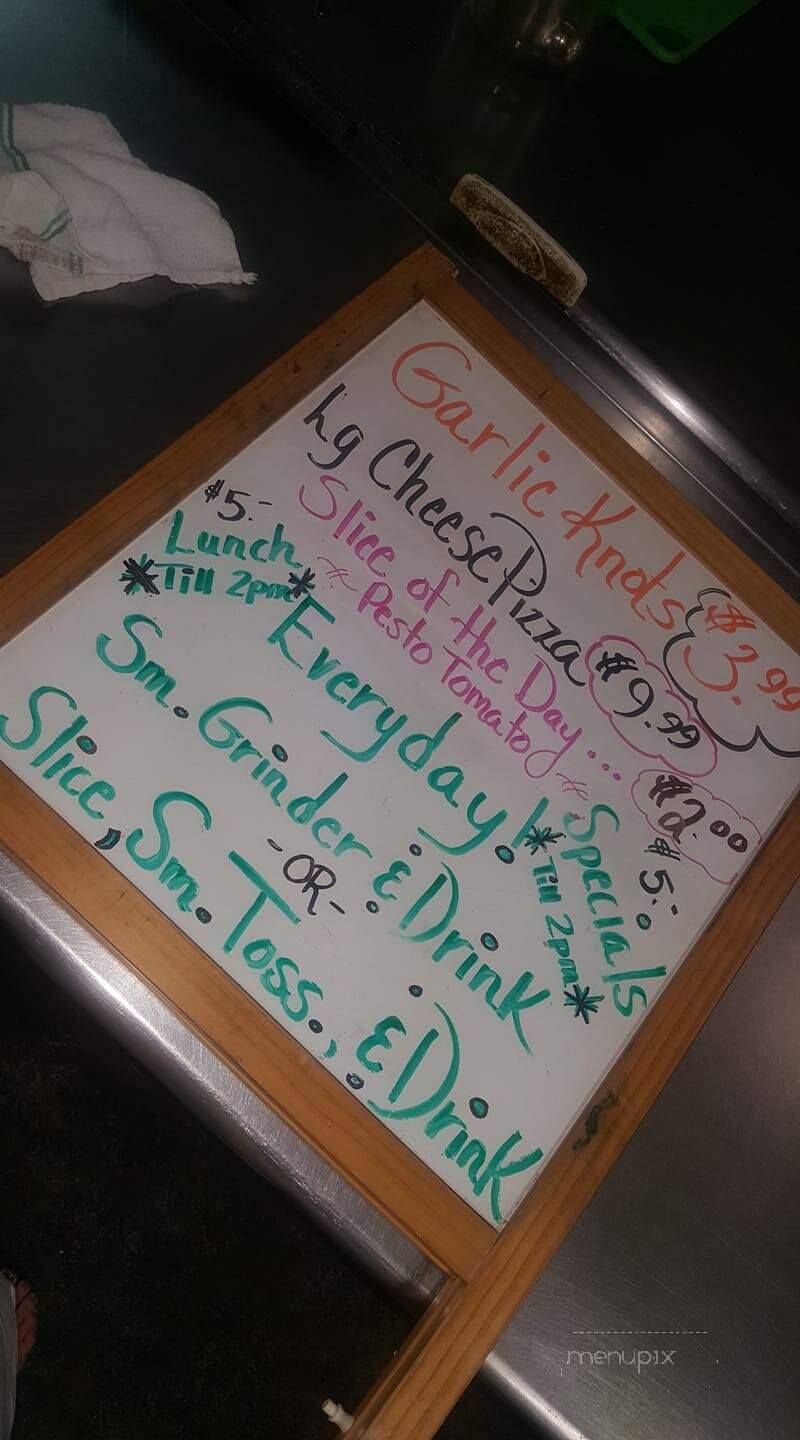 Garlic Knots $3.99
Lg Cheese Pizza $9.99
Slice of the Day... $2.00
* Pesto Tomato *
$5.-
Lunch
*Till 2pm*
Everyday!
Specials
$5.-
*Till 2pm*
Sm. Grinder & Drink
-OR-
Slice, Sm. Toss., & Drink
menupix